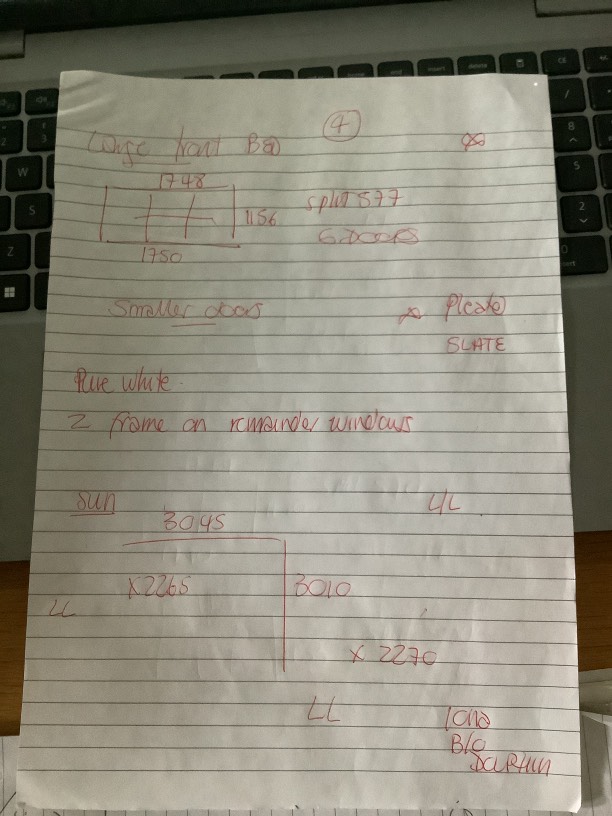 4
Large front Bed
1748
1156
split 577
6 DOORS
1750
Smaller doors
Pleated
SLATE
Pure white
Z frame on remainder windows
Sun
L/L
3045
x 2265
3010
LL
x 2270
LL
B/O